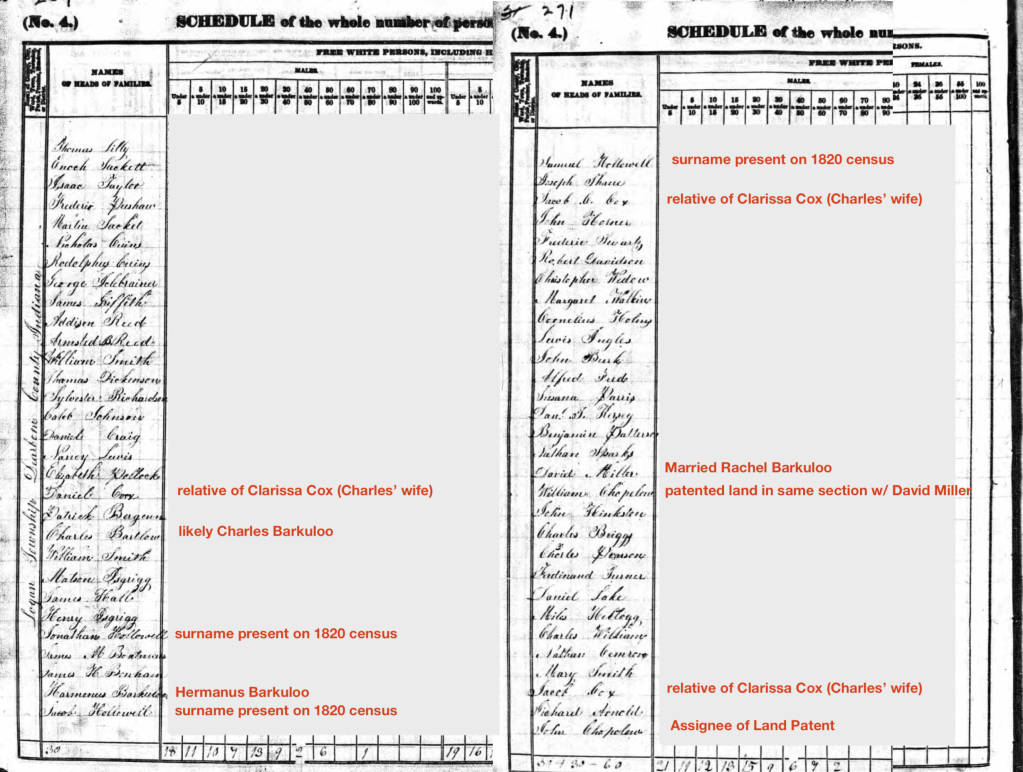 (No. 4.) SCHEDULE of the whole number of perso
FREE WHITE PERSONS, INCLUDING H
NAMES
OF HEADS OF FAMILIES.
MALES.
Under 5
5 & under 10
10 & under 15
15 & under 20
20 & under 30
30 & under 40
40 & under 50
50 & under 60
60 & under 70
70 & under 80
80 & under 90
90 & under 100
100 and upwards.
Under 5
5 & under 10
Logan Township Dearborn County Indiana
Thomas Lilly
Enoch Sackett
Isaac Taylor
Frederic Pushaw
Martin Sacket
Nicholas Cuins
Rodolphus Cuins
George
James Griffith
Addison Reed
Armsted B Reed
William Smith
Thomas Dickinson
Sylvester Richardson
Caleb Johnson
Daniel Craig
Nancy Lewis
Elizabeth Pollock
Daniel Cox relative of Clarissa Cox (Charles’ wife)
Patrick
Charles Bartlow likely Charles Barkuloo
William Smith
Matson Isgrigg
James Hall
Henry Isgrigg
Jonathan Hollowell surname present on 1820 census
James M Boatman
James H Bonham
Harmenus Barkuloo Hermanus Barkuloo
Jacob Hollowell surname present on 1820 census
30 18 11 10 7 13 9 2 6 1 19 16
271
(No. 4.) SCHEDULE of the whole nu
FREE WHITE PE
RSONS.
NAMES
OF HEADS OF FAMILIES.
MALES.
FEMALES.
Under 5
5 & under 10
10 & under 15
15 & under 20
20 & under 30
30 & under 40
40 & under 50
50 & under 60
60 & under 70
70 & under 80
80 & under 90
24 & under 36
36 & under 55
55 & under 100
100 and upwards.
Samuel Hollowell surname present on 1820 census
Joseph Shree
Jacob C. Cox relative of Clarissa Cox (Charles’ wife)
John Horner
Frederic Swarts
Robert Davidson
Christopher Widow
Margaret Watkins
Cornelius
Lewis Ingles
John Burk
Alfred
Susana Parris
Dan. J. Hersey
Benjamin Patterson
Nathan Sparks
David Miller Married Rachel Barkuloo
William Chopelow patented land in same section w/ David Miller
John Hinkston
Charles Briggs
Charles Pearson
Ferdinand Turner
Daniel Lake
Miles Kellogg
Charles William
Nathan
Mary Smith
Jacob Cox relative of Clarissa Cox (Charles’ wife)
Richard Arnold
John Chopelow Assignee of Land Patent
30 + 30 - 60 21 11 12 13 15 9 6 7 2